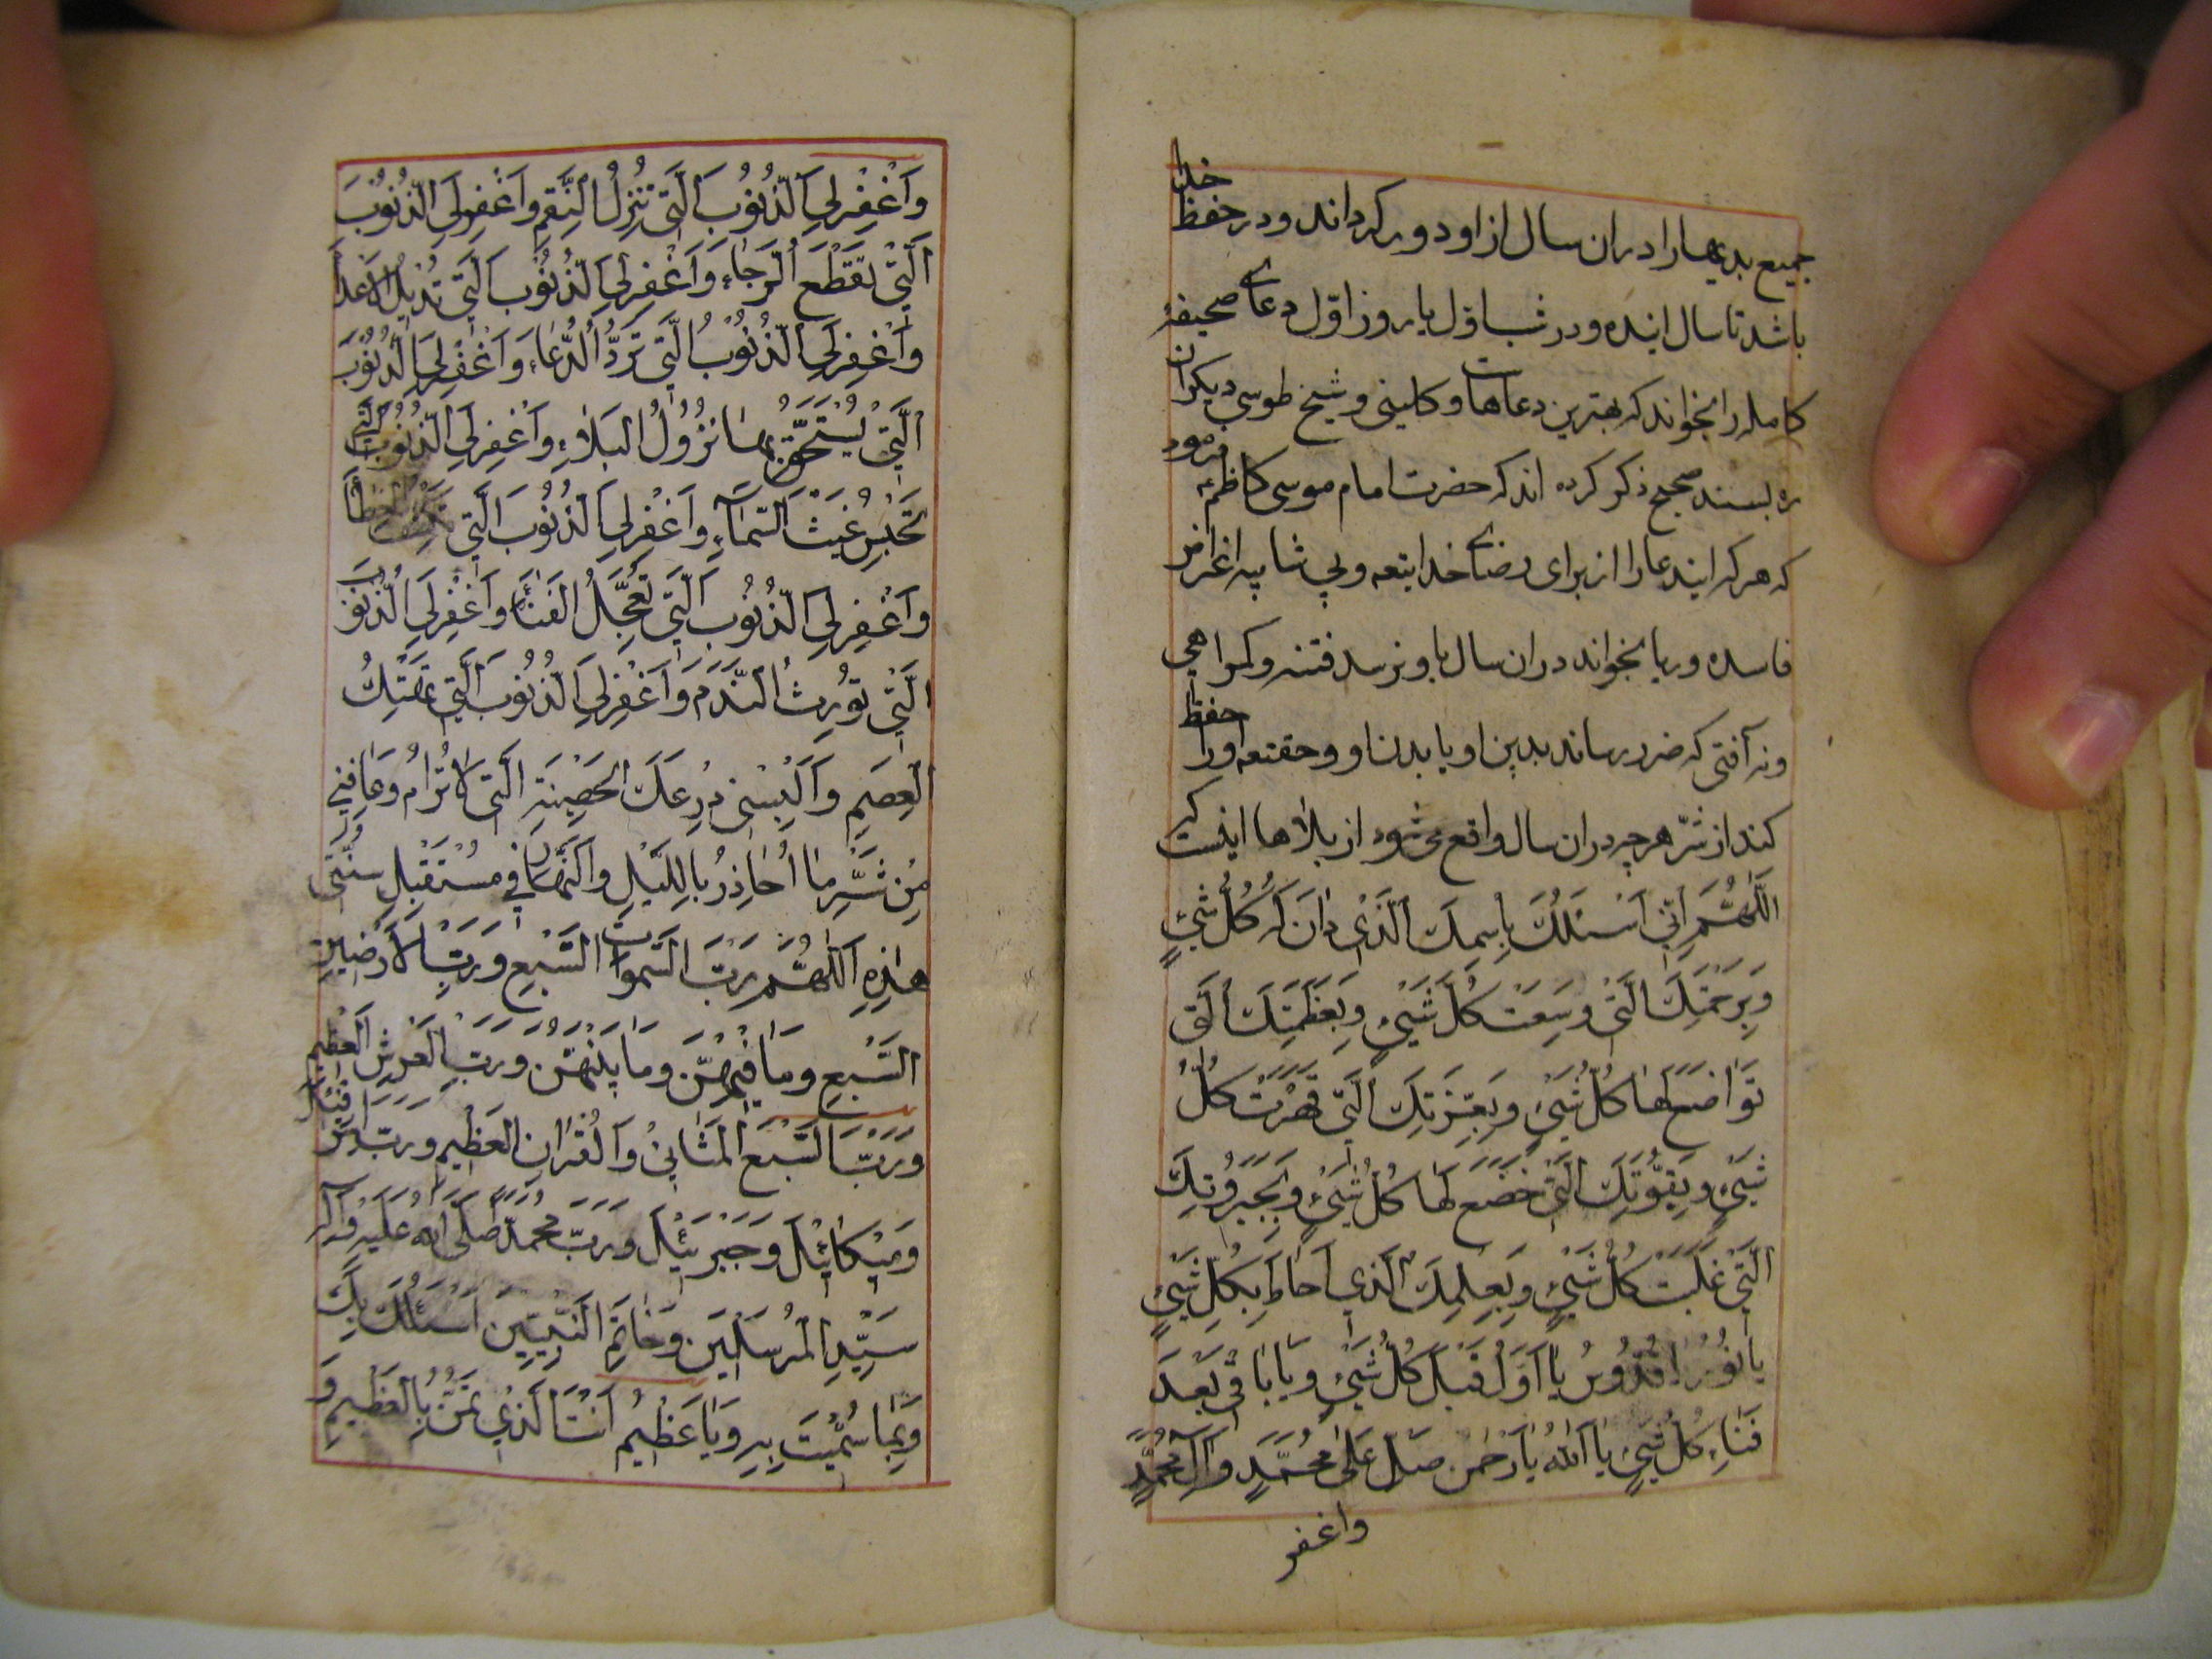 جمیع بدیها را دران سال از او دور کرداند و در حفظ خدا
باشد تا سال اینده و در شب اول یا روز اول دعای صحیفهٔ
کامله را بخواند که بهترین دعاهاست و کلینی و شیخ طوسی و دیکران
ره بسند صحیح ذکر کرده اند که حضرت امام موسی کاظم ع فرمود
که هر که ایندعا را از برای رضای خدایتعه و بی شایبه اغراض
فاسده و ریا بخواند دران سال باو نرسد فتنه و کمراهی
و نه آفتی که ضرر رساند بدین او یا بدن او و حقتعه او را حفظ
کند از شرّ هر چه دران سال واقع میشود از بلاها اینست که
اَللّٰهُمَّ اِنّی اَسْئَلُكَ بِاسْمِكَ الَّذی دٰانَ لَهُ كُلُّ شَیْءٍ
وَبِرَحْمَتِكَ الَّتی وَسِعَتْ كُلَّ شَیْءٍ وَبِعَظَمَتِكَ الَّتی
تَوٰاضَعَ لَهٰا كُلُّ شَیْءٍ وَبِعِزَّتِكَ الَّتی قَهَرَتْ كُلَّ
شَیْءٍ وَبِقُوَّتِكَ الَّتی خَضَعَ لَهٰا كُلُّ شَیْءٍ وَبِجَبَرُوتِكَ
الَّتی غَلَبَتْ كُلَّ شَیْءٍ وَبِعِلْمِكَ الَّذی اَحٰاطَ بِكُلِّ شَیْءٍ
یٰا نُورُ یٰا قُدُّوسُ یٰا اَوَّلُ قَبْلَ كُلِّ شَیْءٍ وَیٰا بٰاقی بَعْدَ
فَنٰاءِ كُلِّ شَیْءٍ یٰا اَللهُ یٰا رَحْمٰنُ صَلِّ عَلٰی مُحَمَّدٍ وَآلِ مُحَمَّدٍ
واغفر
وَاغْفِرْ لِیَ الذُّنُوبَ الَّتی تُنْزِلُ النِّقَمَ وَاغْفِرْ لِیَ الذُّنُوبَ
الَّتی تَقْطَعُ الرَّجٰاءَ وَاغْفِرْ لِیَ الذُّنُوبَ الَّتی تُدیلُ الْاَعْدٰاءَ
وَاغْفِرْ لِیَ الذُّنُوبَ الَّتی تَرُدُّ الدُّعٰاءَ وَاغْفِرْ لِیَ الذُّنُوبَ
الَّتی یُسْتَحَقُّ بِهٰا نُزُولُ الْبَلٰاءِ وَاغْفِرْ لِیَ الذُّنُوبَ الَّتی
تَحْبِسُ غَیْثَ السَّمٰآءِ وَاغْفِرْ لِیَ الذُّنُوبَ الَّتی تَكْشِفُ الْغِطٰاءَ
وَاغْفِرْ لِیَ الذُّنُوبَ الَّتی تُعَجِّلُ الْفَنٰاءَ وَاغْفِرْ لِیَ الذُّنُوبَ
الَّتی تُورِثُ النَّدَمَ وَاغْفِرْ لِیَ الذُّنُوبَ الَّتی تَهْتِكُ
الْعِصَمَ وَاَلْبِسْنی دِرْعَكَ الْحَصینَةَ الَّتی لٰا تُرٰامُ وَعٰافِنی
مِنْ شَرِّ مٰا اُحٰاذِرُ بِاللَّیْلِ وَالنَّهٰارِ فی مُسْتَقْبِلِ سَنَتی
هٰذِهِ اَللّٰهُمَّ رَبَّ السَّمٰوٰاتِ السَّبْعِ وَرَبَّ الْاَرَضینَ
السَّبْعِ وَمٰا فیهِنَّ وَمٰا بَیْنَهُنَّ وَرَبَّ الْعَرْشِ الْعَظیمِ
وَرَبَّ السَّبْعِ الْمَثٰانی وَالْقُرْاٰنِ الْعَظیمِ وَرَبَّ اِسْرٰافیلَ
وَمیكٰائیلَ وَجَبْرَئیلَ وَرَبَّ مُحَمَّدٍ صَلَّی اللهُ عَلَیْهِ وَآلِهِ
سَیِّدِ الْمُرْسَلینَ وَخٰاتَمِ النَّبِیّینَ اَسْئَلُكَ بِكَ
وَبِمٰا سُمّیتَ بِهِ وَیٰا عَظیمُ اَنْتَ الَّذی تَمُنُّ بِالْعَظیمِ وَ